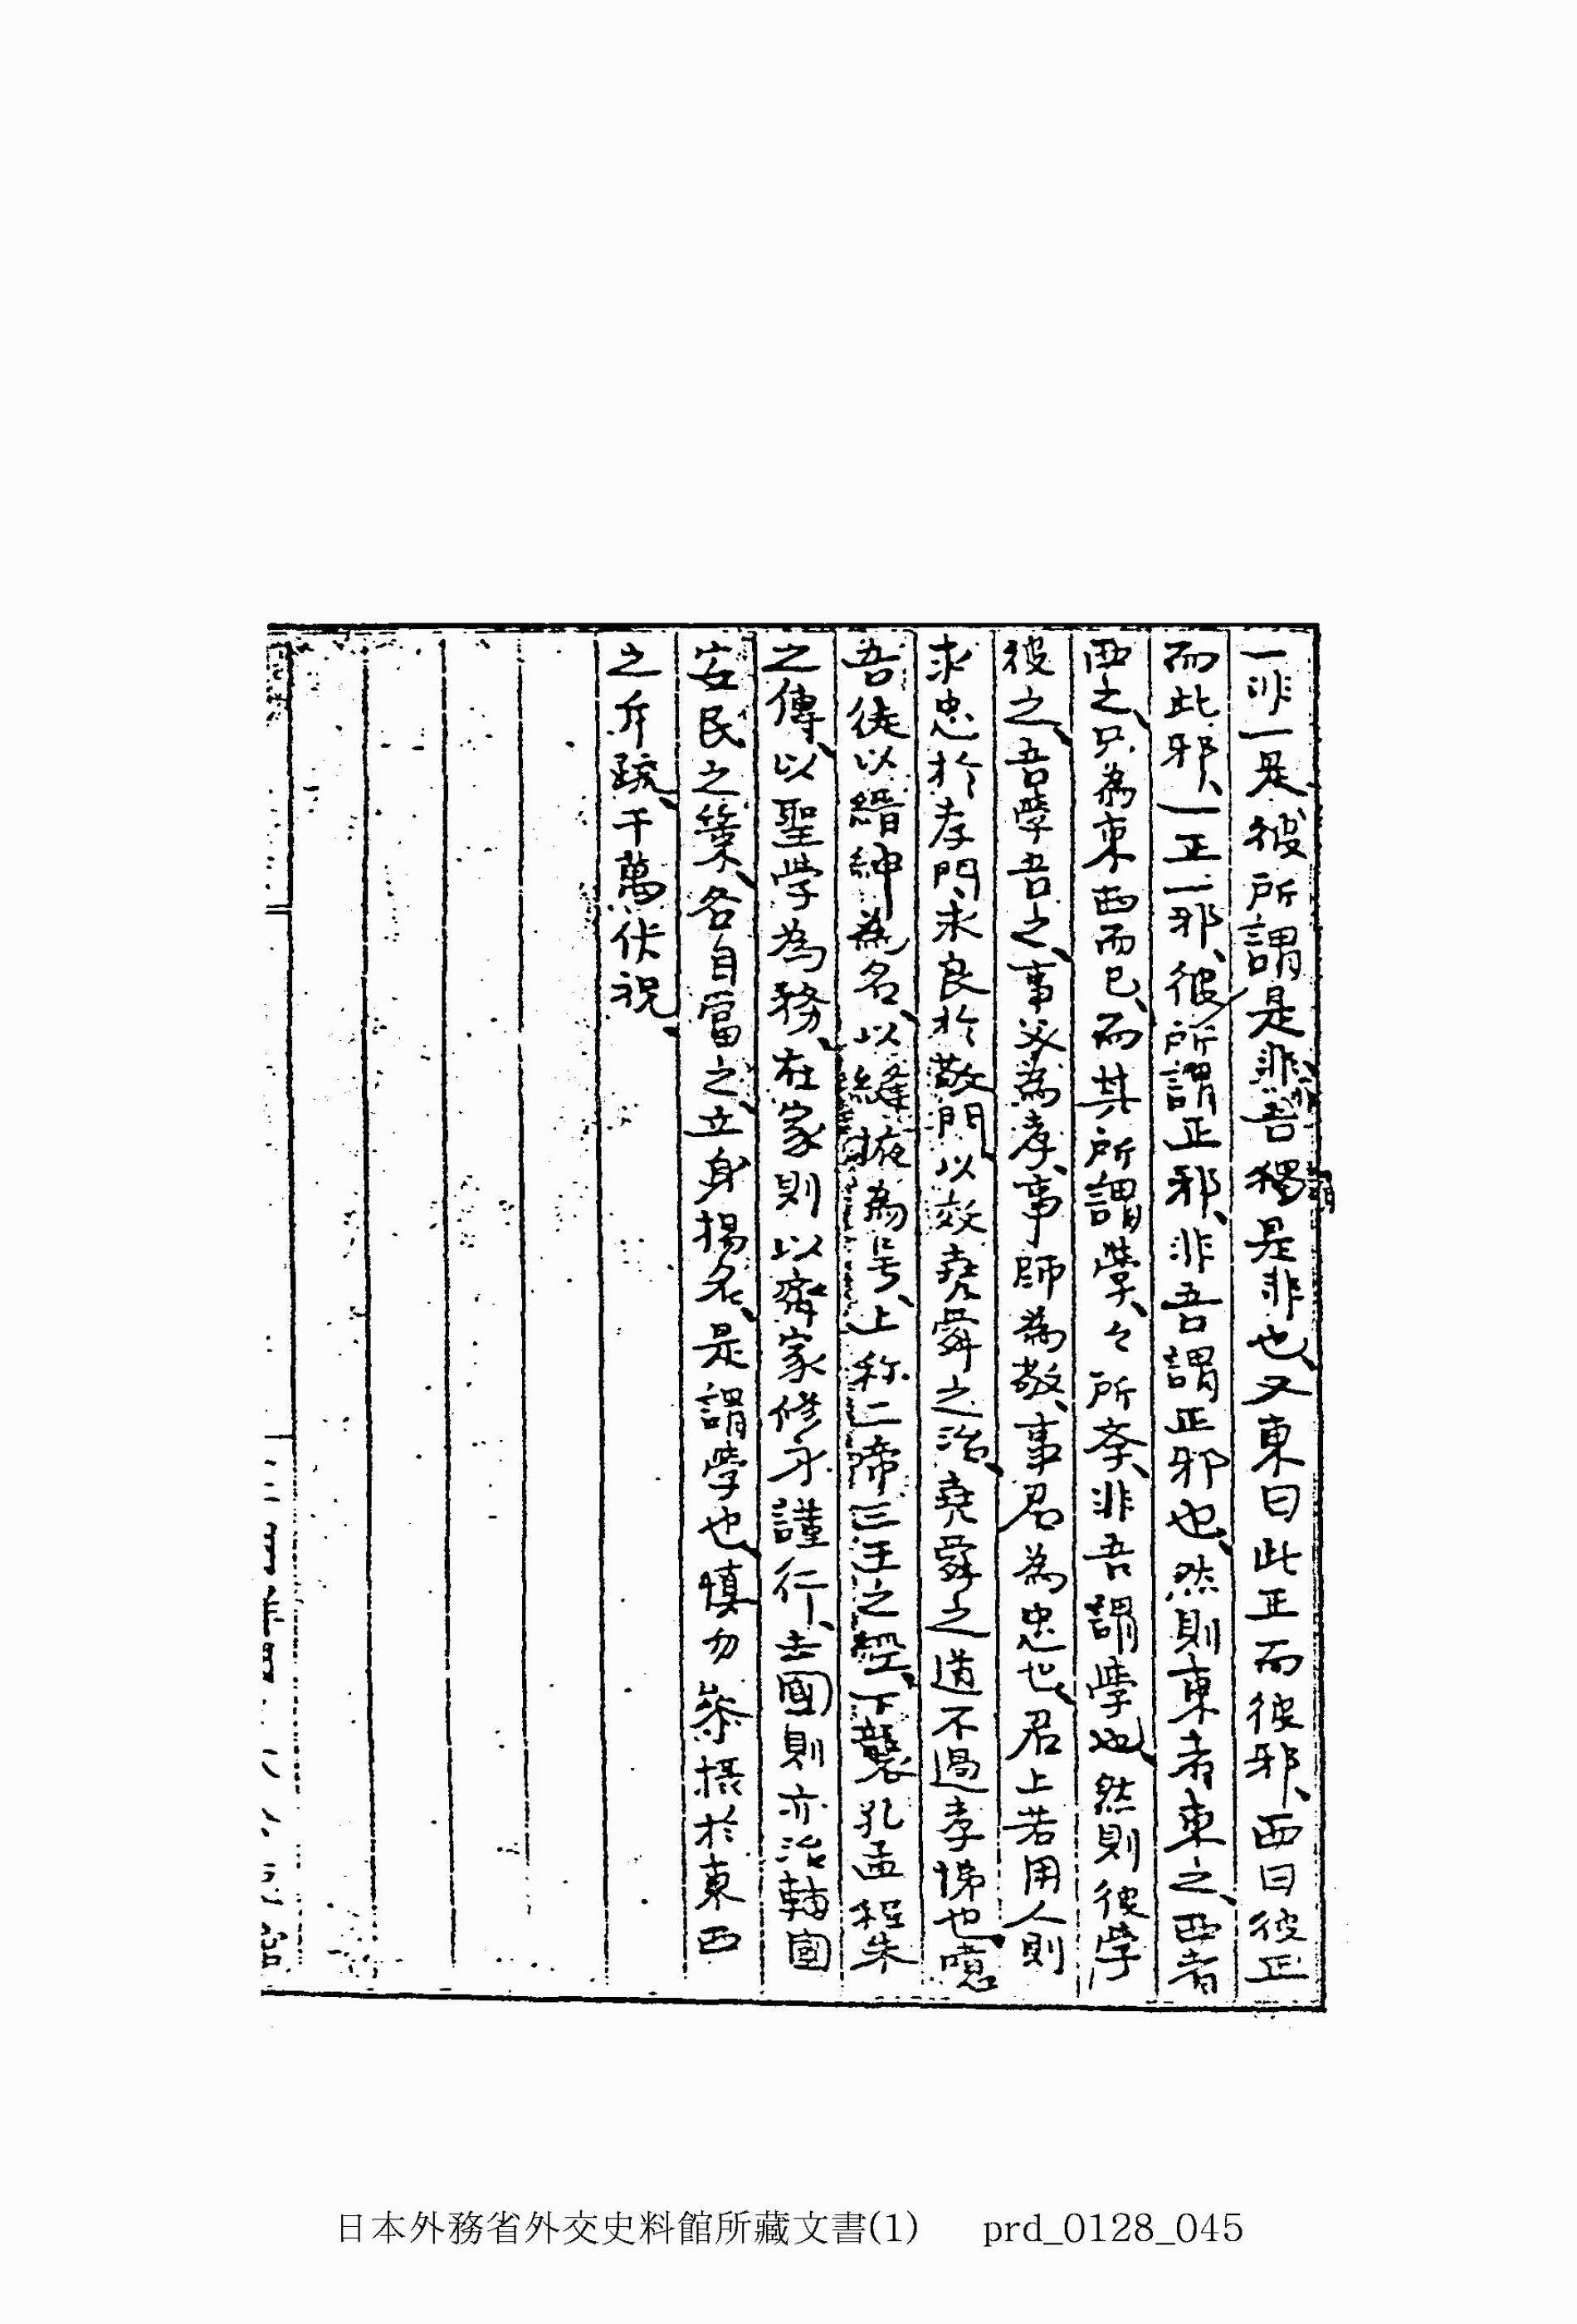 一非一是、彼所謂是非、非吾獨謂是非也、又東曰此正而彼邪、西曰彼正
而此邪、一正一邪、彼所謂正邪、非吾謂正邪也、然則東者東之、西者
西之、只為東西而已、而其所謂學、々所斈、非吾謂學也、然則彼學
彼之、吾學吾之、事父為孝、事師為敬、事君為忠也、君上若用人則
求忠於孝門、求良於敬門、以效堯舜之治、堯舜之道不過孝悌也、噫
吾徒以縉紳為名、以縫掖為号、上称二帝三王之經、下襲孔孟程朱
之傳、以聖學為務、在家則以齊家修身謹行、去國則亦治韓國
安民之策、各自當之、立身揚名、是謂學也、慎勿參攝於東西
之斥疏、千萬伏祝、
日本外務省外交史料館所藏文書(1) prd_0128_045